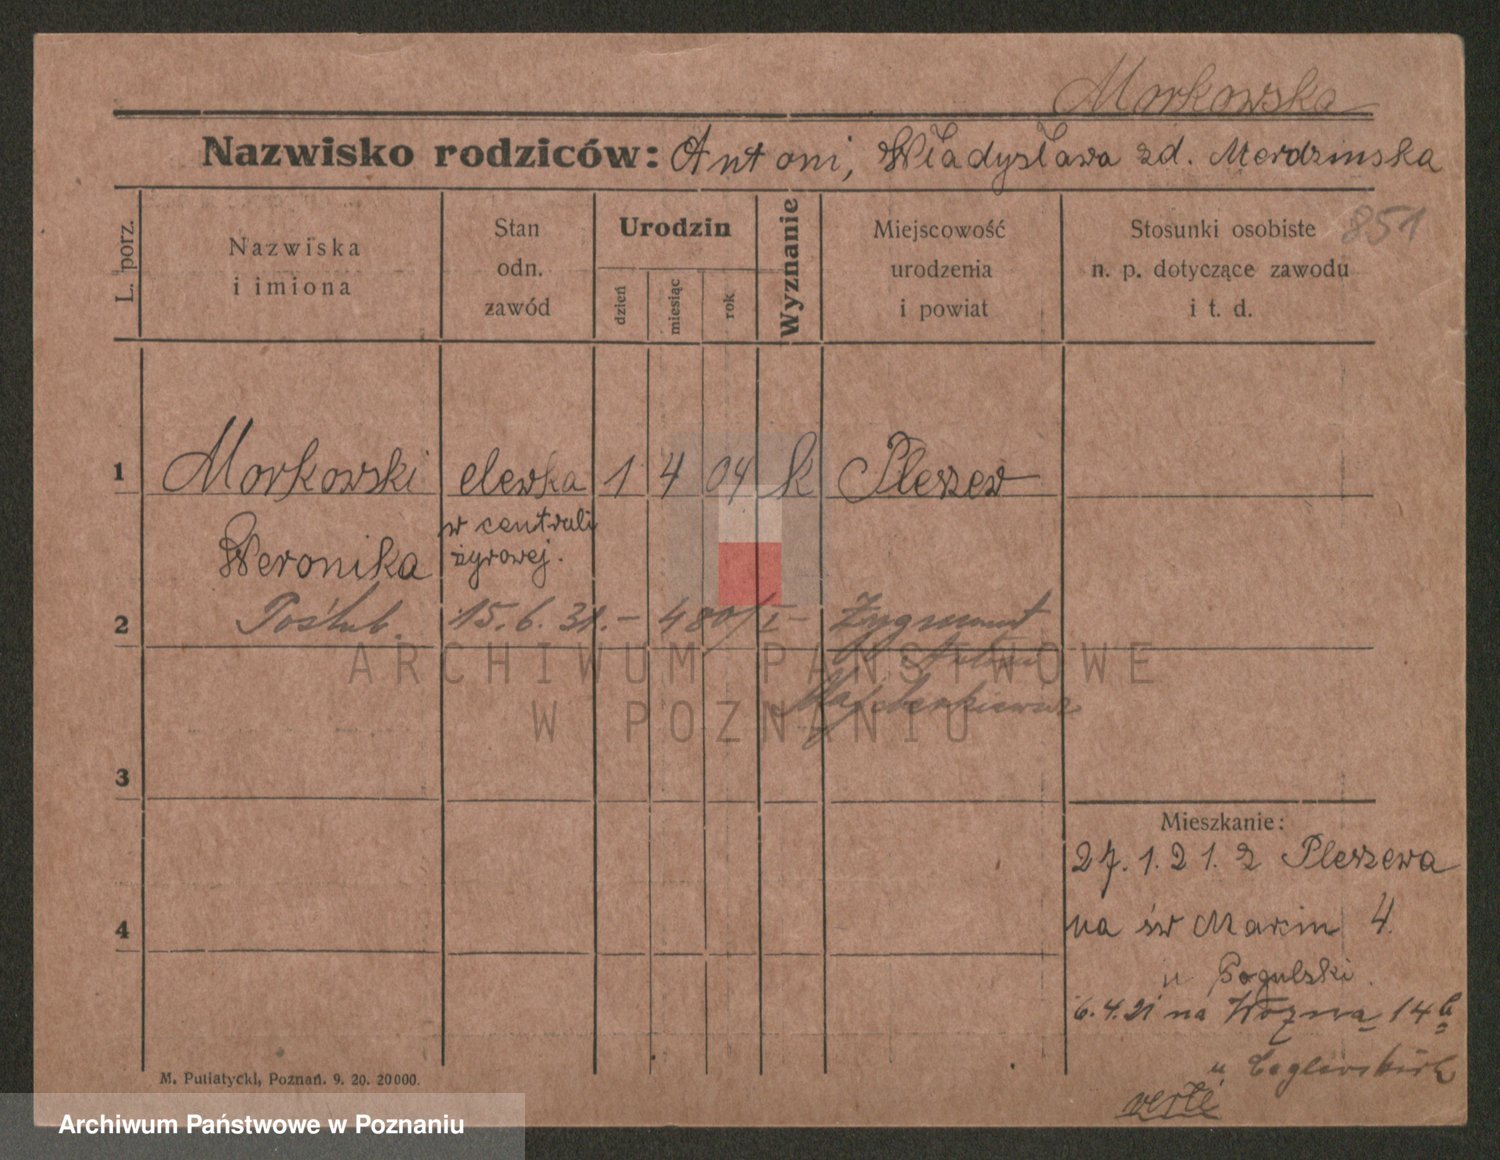 Morkowska
Nazwisko rodziców: Antoni, Władysława zd. Merdzinska
L. porz.
Nazwiska
i imiona
Stan
odn.
zawód
Urodzin
dzień
miesiąc
rok
Wyznanie
Miejscowość
urodzenia
i powiat
Stosunki osobiste 851
n. p. dotyczące zawodu
i t. d.
1 Morkowski elewka 1 4 04 k Pleszew
Weronika w centrali
żyrowej.
2 Pośłub. 15.6.31.– 480/I– Zygmunt
Antoni
3
Mieszkanie:
27.1.21. z Pleszewa
4 na św Marcin 4
u
6.4.21 na Woźna 14
u
verte
M. Putiatycki, Poznań. 9. 20. 20000.
ARCHIWUM PAŃSTWOWE
W POZNANIU
Archiwum Państwowe w Poznaniu